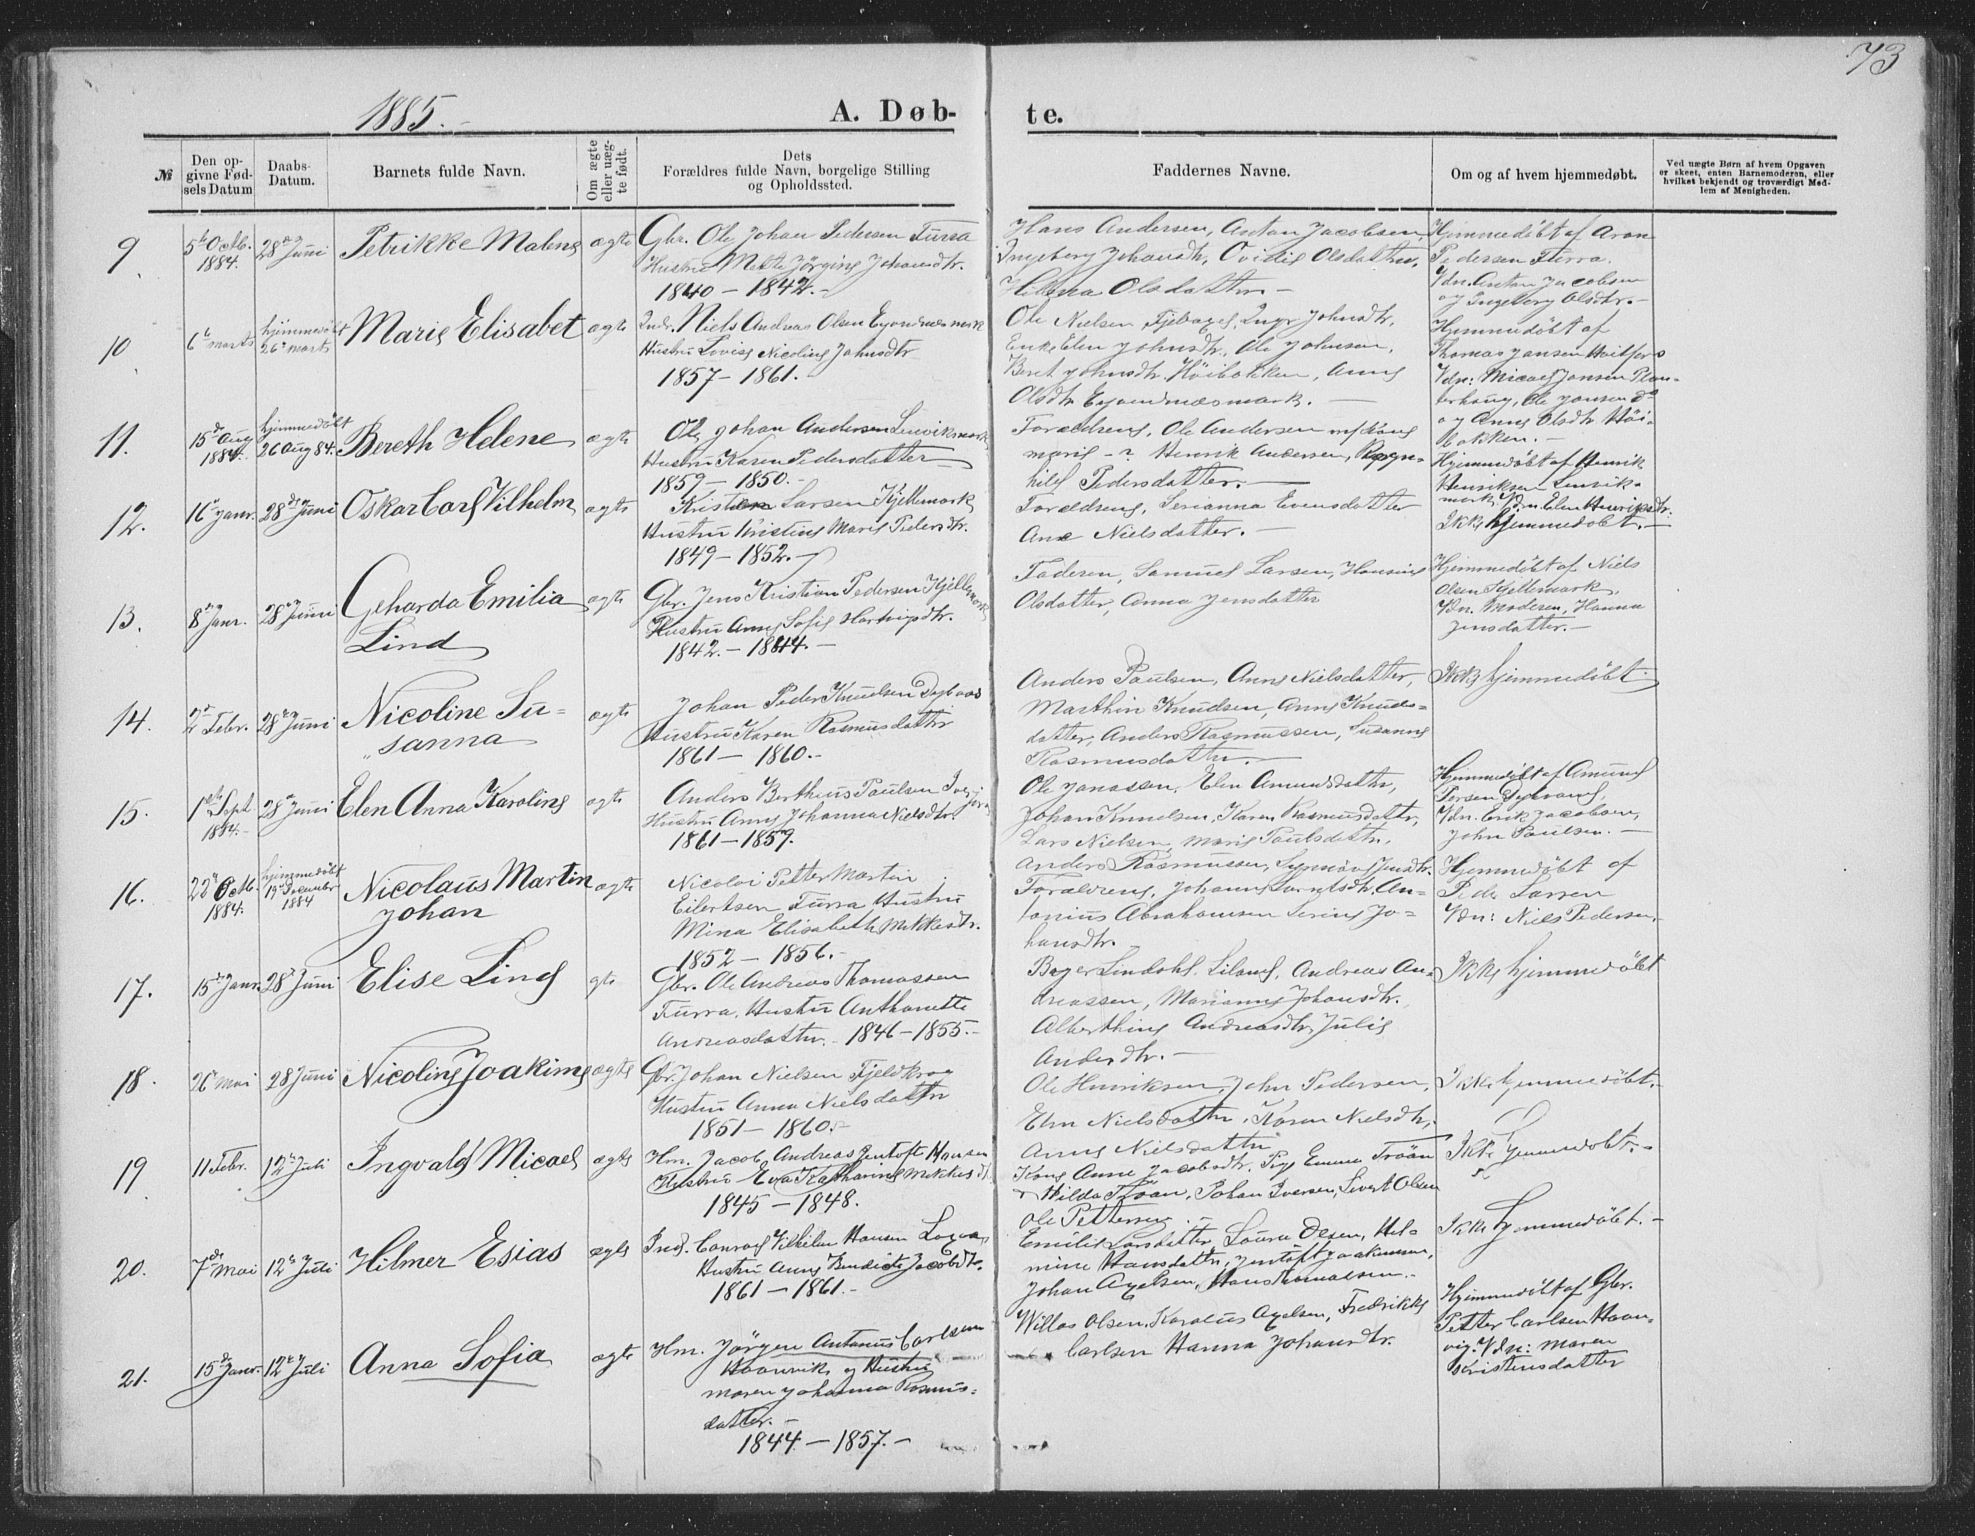 73
1885.-
A. Døb-
te.
№
Den op-
givne Fød-
sels Datum
Daabs-
Datum.
Barnets fulde Navn.
Om ægte
eller uæg-
te født.
Dets
Forældres fulde Navn, borgelige Stilling
og Opholdssted.
Faddernes Navne.
Om og af hvem hjemmedøbt.
Ved uægte Børn af hvem Opgaven
er skeet, enten Barnemoderen, eller
hvilket bekjendt og troværdigt Med-
lem af Menigheden.
9.
5te Octb.
1884.
28de Juni
Petrikke Malene
ægte
Gbr. Ole Johan Pedersen Turra
Hustru Mette Jørgine Johansdtr.
1840 - 1842.-
Hans Andersen, Anton Jacobsen,
Ingeborg Johansdtr, Ovidie Olsdatter,
Helena Olsdatter.-
Hjemmedøbt af Aron
Pedersen Turra.
Vdn. Anton Jacobsen
og Ingeborg Olsdtr.-
10
6te marts
hjemmedøbt
26de marts
Marie Elisabet
ægte
Indr. Niels Andreas Olsen Eyvendnesmark
Hustru Lovise Nicoline Johnsdtr
1857 - 1861.
Ole Nielsen, Inger Johnsdtr,
Enke Elen Johnsdtr, Ole Johnsen,
Beret Johnsdtr Høibakken, Anne
Olsdtr Eyvendnæsmark. -
Hjemmedøbt af
Thomas Jansen
Vdn: Micael Jansen Plan-
terhaug, Ole Jansen do
og Anne Olsdtr Høi-
bakken.-
11.
15de Aug
1884.
hjemmedøbt
26 Aug 84.
Bereth Helene
ægte
Ole Johan Andersen Lenvikmark
Hustru Karen Pedersdatter
1859 - 1850.-
Forældrene, Ole Andersen
marie - ? Henrik Andersen, Ragn-
hild Pedersdatter.-
Hjemmedøbt af Henrik
Henriksen Lenvik-
mark Vdn. Elen Henriksdtr.
12.
16de Janr.
28de Juni
Oskar Carl Vilhelm
ægte
Kristen Larsen Kjellemark
Hustru Kristine Marie Pedersdtr.
1849 - 1852.-
Forældrene, Serianna Evensdatter
Ane Nielsdatter. -
Ikke hjemmedøbt.-
13.
8de Janr.
28de Juni
Geharda Emilia
Lind
ægte
Gbr. Jens Kristian Pedersen Kjellemark
Hustru Anne Sofie Hartvigsdtr.
1842. - 1844. -
Faderen, Samuel Larsen, Hansine
Olsdatter, Anna Jensdatter
Hjemmedøbt af Niels
Olsen Kjellemark,
Vdn. Moderen, Hanna
Jensdatter.-
14.
2de Febr.
28de Juni
Nicoline Su-
sanna
ægte
Johan Peder Knudsen
Hustru Karen Rasmusdatter
1861 - 1860.-
Anders Paulsen, Anne Nielsdatter,
Marthin Knudsen, Anne Knuds-
datter, Anders Rasmussen, Susanne
Rasmusdatter.-
Ikke hjemmedøbt.
15.
1ste Sept
1884.-
28de Juni
Elen Anna Karoline
ægte
Anders Bertheus Paulsen
Hustru Anne Johanna Nielsdtr.
1861 - 1859.
Ole Jonassen, Elen Amundsdatter,
Johan Knudsen, Karen Rasmusdatter,
Lars Nielsen, Marie Paulsdatter,
Anders Rasmussen,
Hjemmedøbt af Amund
Vdn. Erik Jacobsen,
John Paulsen. -
16.
22de Octb.
1884.
hjemmedøbt
19de December
1884
Nicolaus Martin
Johan
ægte
Nicolai Petter Martin
Eilertsen Turra Hustru
Mina Elisabeth Mikkelsdtr.
1852 - 1856.-
Forældrene, Johanna Larntsdtr, An-
tonius Abrahamsen Serine Jo-
hansdtr.
Hjemmedøbt af
Peder Larsen
Vdn: Niels Pedersen,
17.
15de Janr.
28de Juni
Elise Line
gte
Gbr. Ole Andreas Thomassen
Turra, Hustru Anthonette
Andreasdatter. 1846 - 1855.-
Andreas An-
dreassen, Marianne Johansdtr.
Alberthine Andreasdtr, Julie
Andersdtr.-
Ikke hjemmedøbt
18.
26de Mai
28 Juni
Nicoline Joakime
ægte
Gbr. Johan Nielsen Fjeldkrog
Hustru Anna Nielsdatter
1851 - 1860.-
Ole Henriksen, John Pedersen,
Elen Nielsdatter, Karen Nielsdtr,
Anne Nielsdatter
Ikke hjemmedøbt.-
19
11 Febr.
12te Juli
Ingvald Micael
ægte
Hm. Jacob Andreas Jentoft Hansen
Hustru Eva Katharine Mikkelsdtr
1845 - 1848.
Kone Anne Jacobsdtr. Pige Emma Troan
Hilda Troan, Johan Iversen, Sivert Olsen
Ole Pettersen.-
Ikke hjemmedøbt.-
20.
7de Mai
12te Juli
Hilmer Esias
ægte
Ind. Conrad Vilhelm Hansen
Hustru Anne Bendicte Jacobsdtr.
1861 - 1861.-
Emilie Larsdatter, Laura Olsen, Hel-
mine Hansdatter, Jentoft Joakimsen,
Johan Axelsen, Hans
Ikke hjemmedøbt.-
21.
15de Janr.
12te Juli
Anna Sofia
ægte
Hm. Jørgen Antonius Carlsen
Haanvik og Hustru
Maren Johanna Rasmus-
datter.-
1844 - 1857.-
Willas Olsen, Karolius Axelsen, Fredrikke
Carlsen Hanna Johansdtr.
Hjemmedøbt af Gbr.
Petter Carlsen Haan-
vig. Vdn: Maren
Kristensdatter